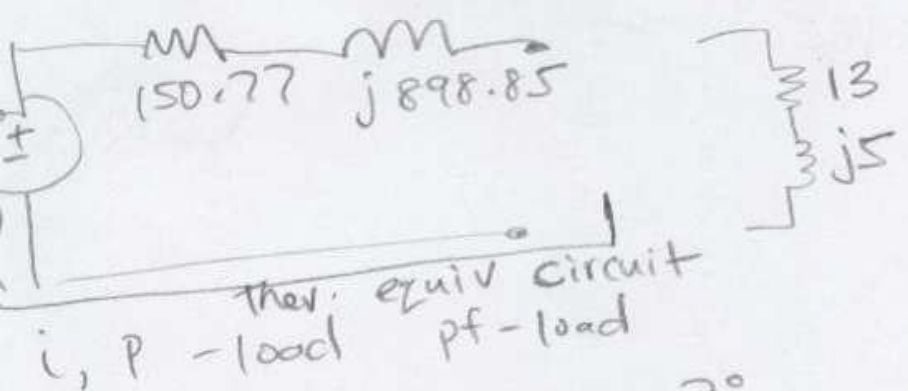 150.77 j898.85
13
j5
+
-
thev. equiv circuit
i, p -load pf-load